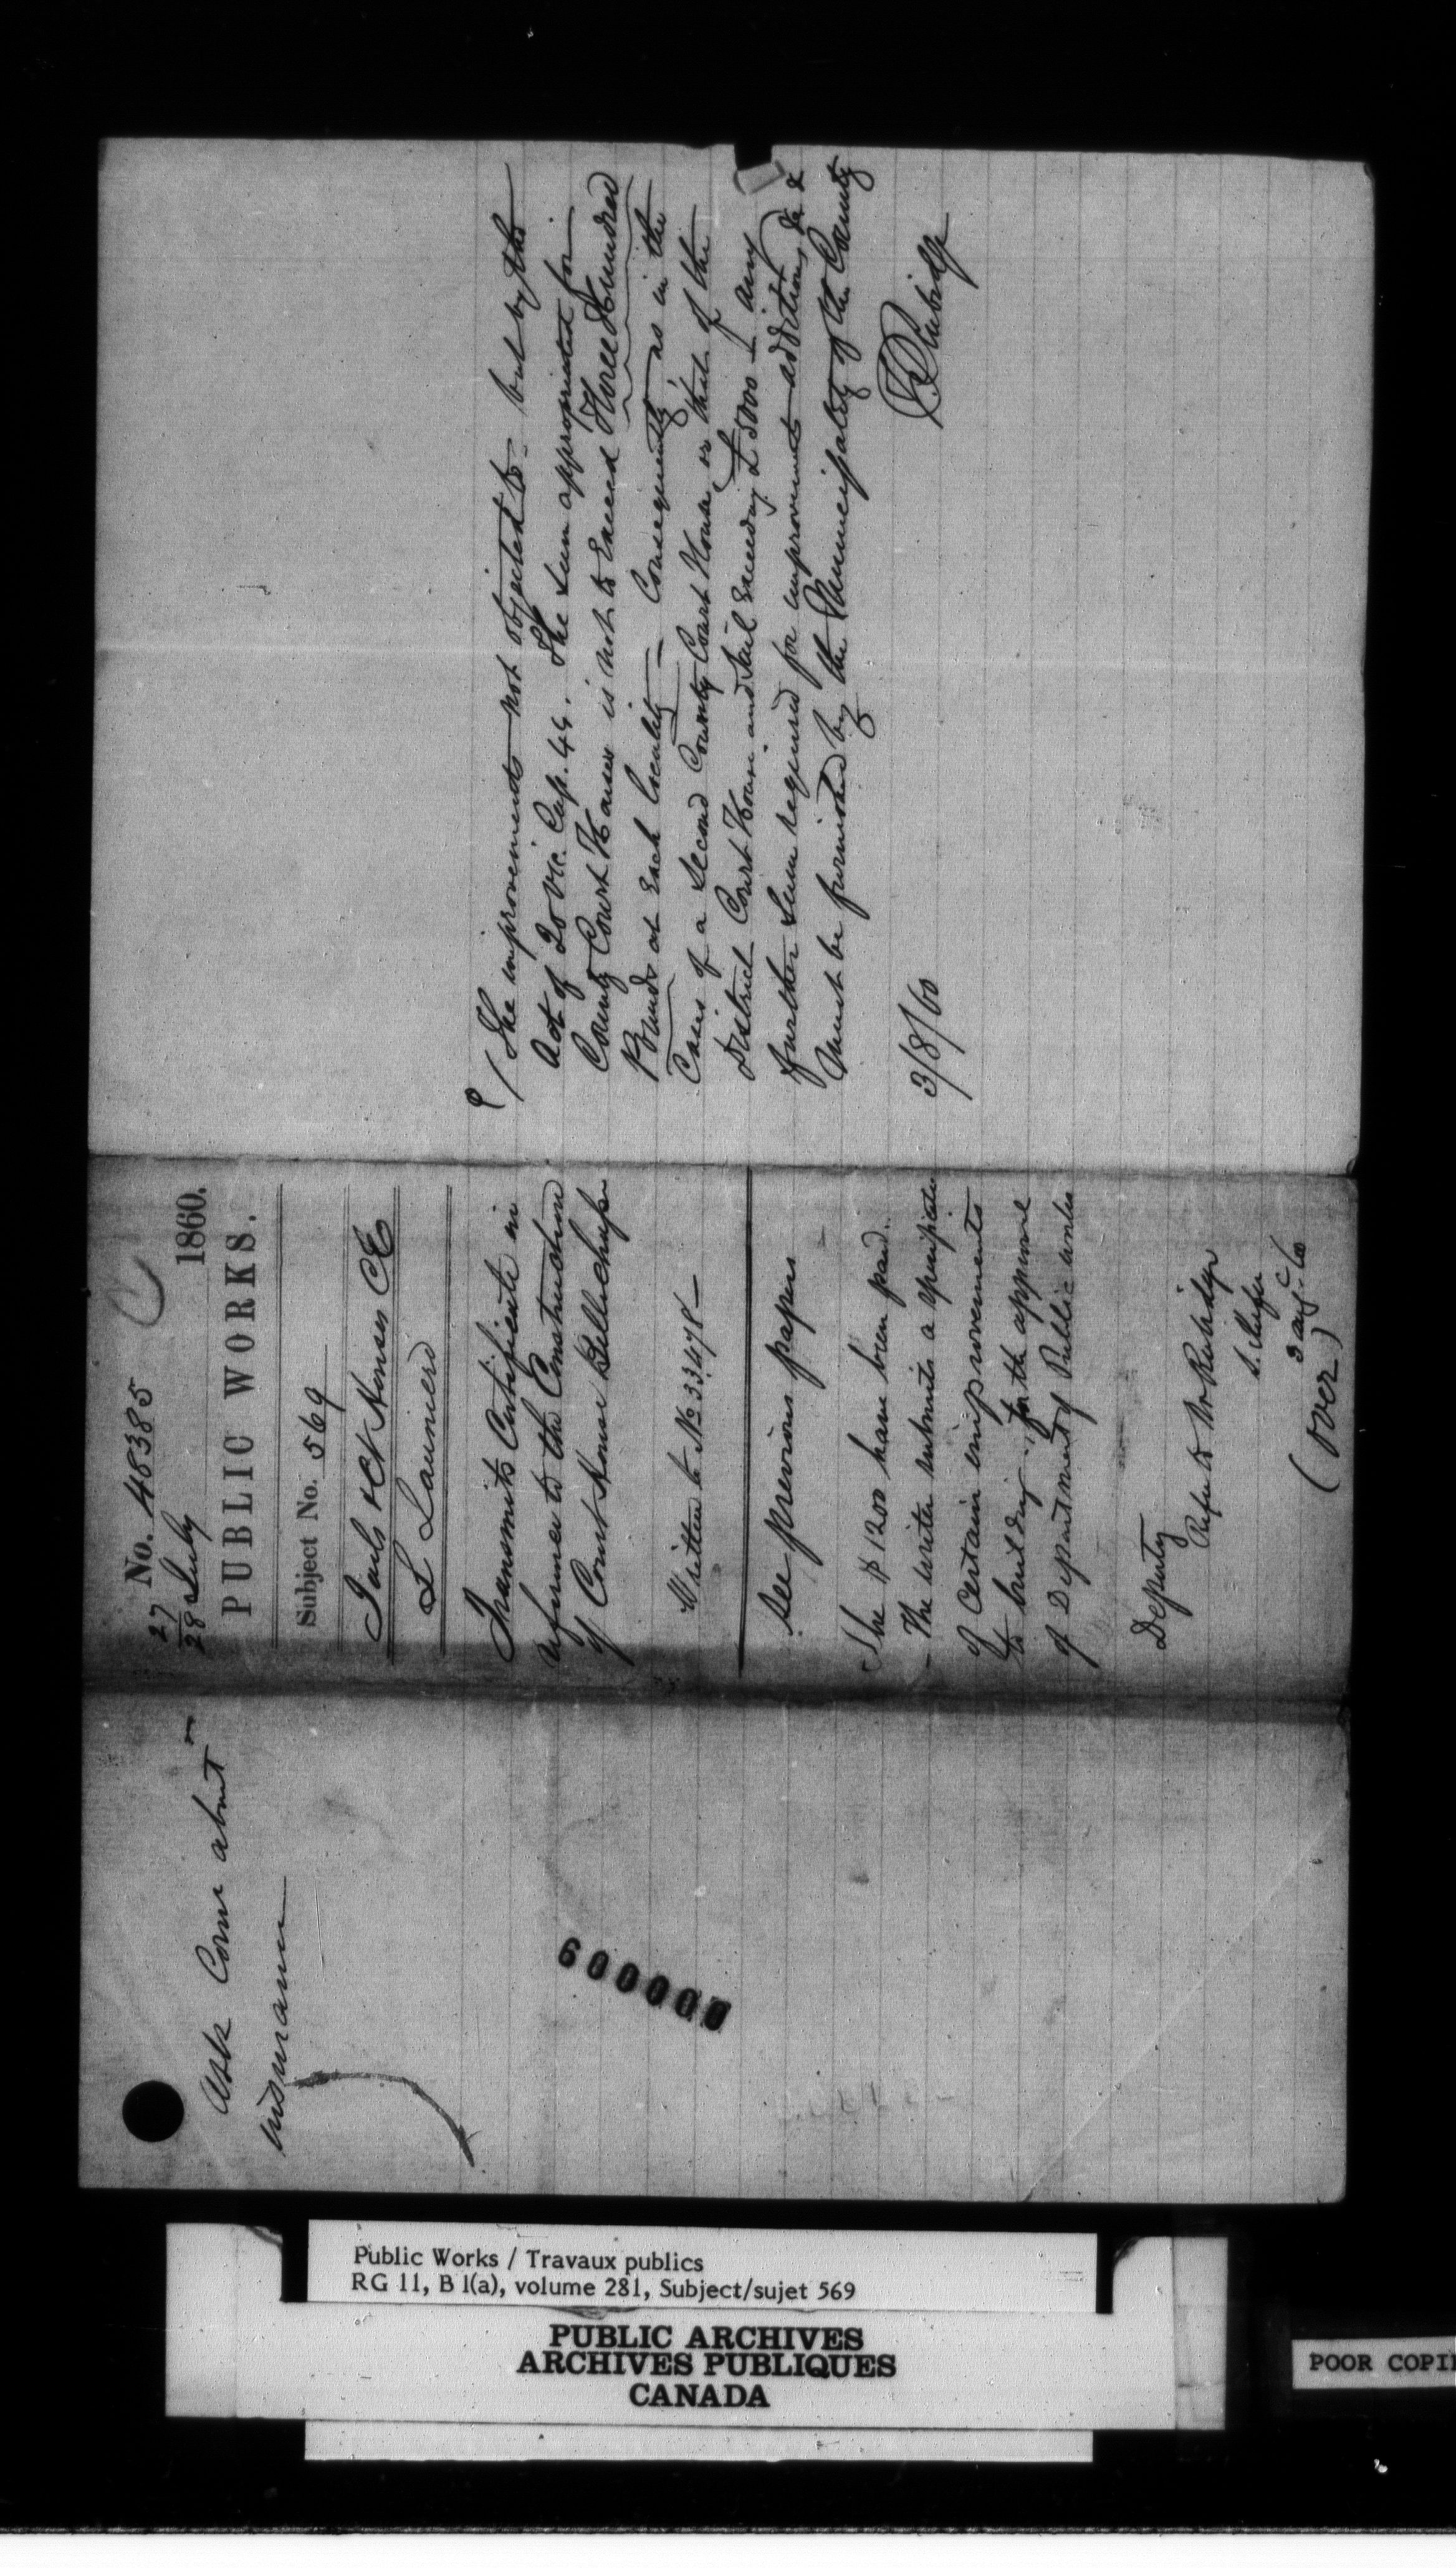 Ask Com about
insurance
600000
No. 48385
27
28 July 1860.
PUBLIC WORKS.
Subject No. 569
Jails & Ct Houses CE
L Launierd
Transmits Certificate in
reference to the Construction
of Court House Bellechasse
Written to No 33478 —
See previous papers
The $1200 have been paid.
- The writer submits a specification
of certain improvements
to building for the approval
of Department of Public Works
Deputy
Refer to Mr Rubidge
3 Aug. 60
(over)
The improvements not objected to - but by the
Act of 20 Vic. Cap. 44. The sum appropriated for
County Court Houses is not to Exceed Three Hundred
Pounds at Each locality — Consequently as in the
Cases of a second County Court House, or that of the
District Court House and Jail Exceeding £5000 — any
further Sum required for improvements additions &c &
must be furnished by the Municipality of the County
3/8/60
F P Rubidge
Public Works / Travaux publics
RG 11, B 1(a), volume 281, Subject/sujet 569
PUBLIC ARCHIVES
ARCHIVES PUBLIQUES
CANADA
POOR COPI